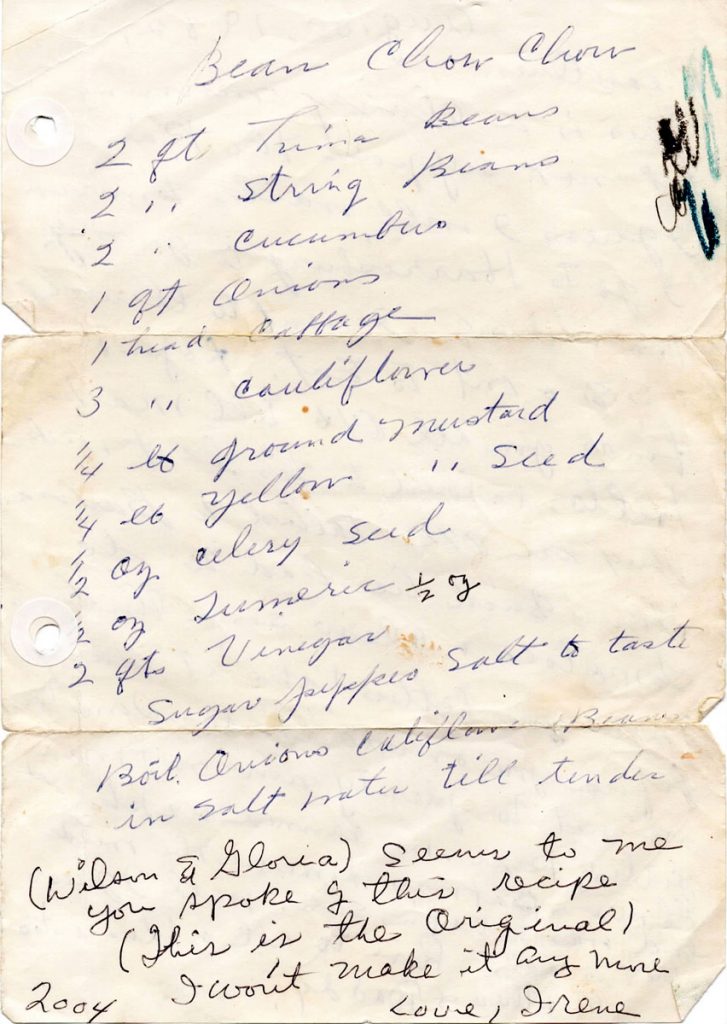 Bean Chow Chow
2 qt Lima Beans
2 " String Beans
2 " cucumbers
1 qt Onions
1 head Cabbage
3 " cauliflower
1/4 lb ground mustard
1/4 lb yellow " seed
1/2 oz celery seed
1/2 oz Tumeric 1/2 oz
2 qts Vinegar
Sugar peppers Salt to taste
Boil Onions Califlower, Beans
in salt water till tender
(Wilson & Gloria) Seems to me
you spoke of this recipe
(This is the Original)
I won't make it any more
2004 Love, Irene